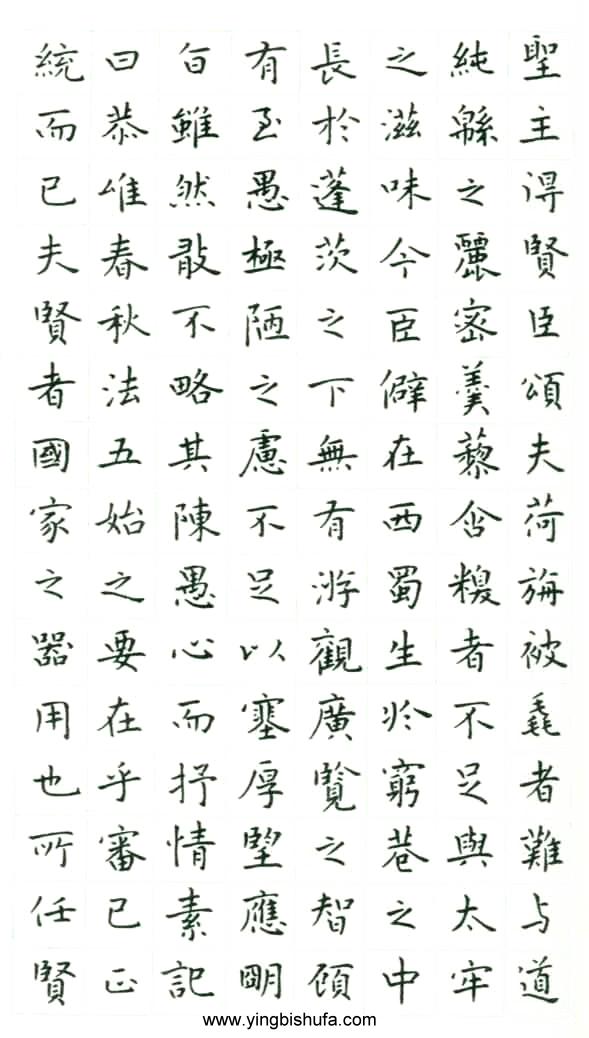 聖主得賢臣頌夫荷旃被毳者難与道
純緜之麗密羹藜含糗者不足與太牢
之滋味今臣僻在西蜀生於窮巷之中
長於蓬茨之下無有游觀廣覽之智顧
有至愚極陋之慮不足以塞厚望應明
旨雖然敢不略其陳愚心而抒情素記
曰恭惟春秋法五始之要在乎審己正
統而已夫賢者國家之器用也所任賢
www.yingbishufa.com